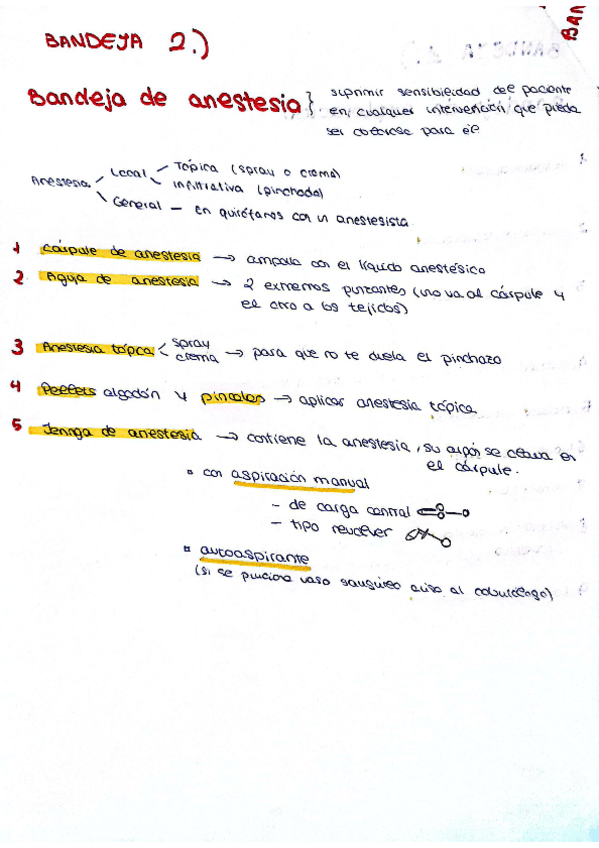 BAN
BANDEJA 2.)
Bandeja de anestesia } suprimir sensibilidad del paciente
en cualquier intervención que pueda
ser dolorosa para él
Anestesia
Local
Tópica (spray o crema)
Infiltrativa (pinchada)
General — en quirófanos con un anestesista
1 Cárpule de anestesia → ampolla con el líquido anestésico
2 Aguja de anestesia → 2 extremos punzantes (uno va al cárpule y
el otro a los tejidos)
3 Anestesia tópica < spray
crema → para que no te duela el pinchazo
4 Pellets algodón y pinceles → aplicar anestesia tópica
5 Jeringa de anestesia → contiene la anestesia, su arpón se clava en
el cárpule.
▫ con aspiración manual
- de carga central
- tipo revolver
▫ autoaspirante
(si se punciona vaso sanguíneo avisa al odontólogo)